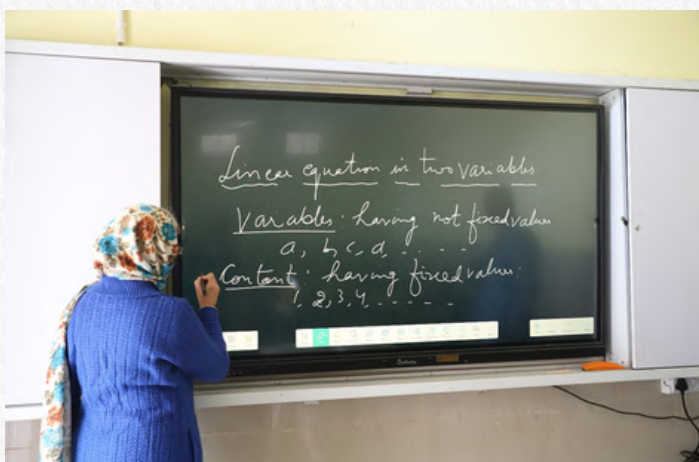 Linear equation in two variables
Varables: having not fixed values
a, b, c, d, . . . . .
Contant: having fixed values:
1, 2, 3, 4, . . . . . .